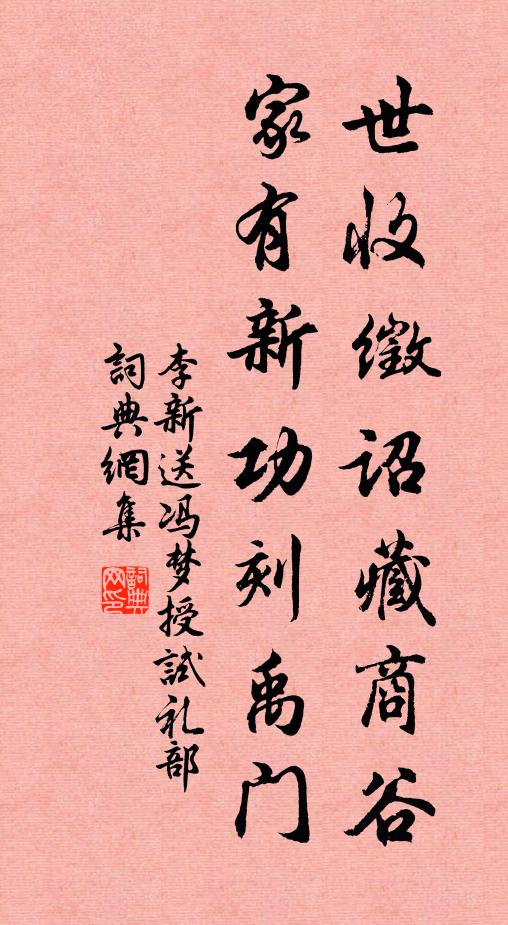 世收徵詔藏商谷
家有新功刻禹门
李新送冯梦授試礼部
詞典網集
詞典网印